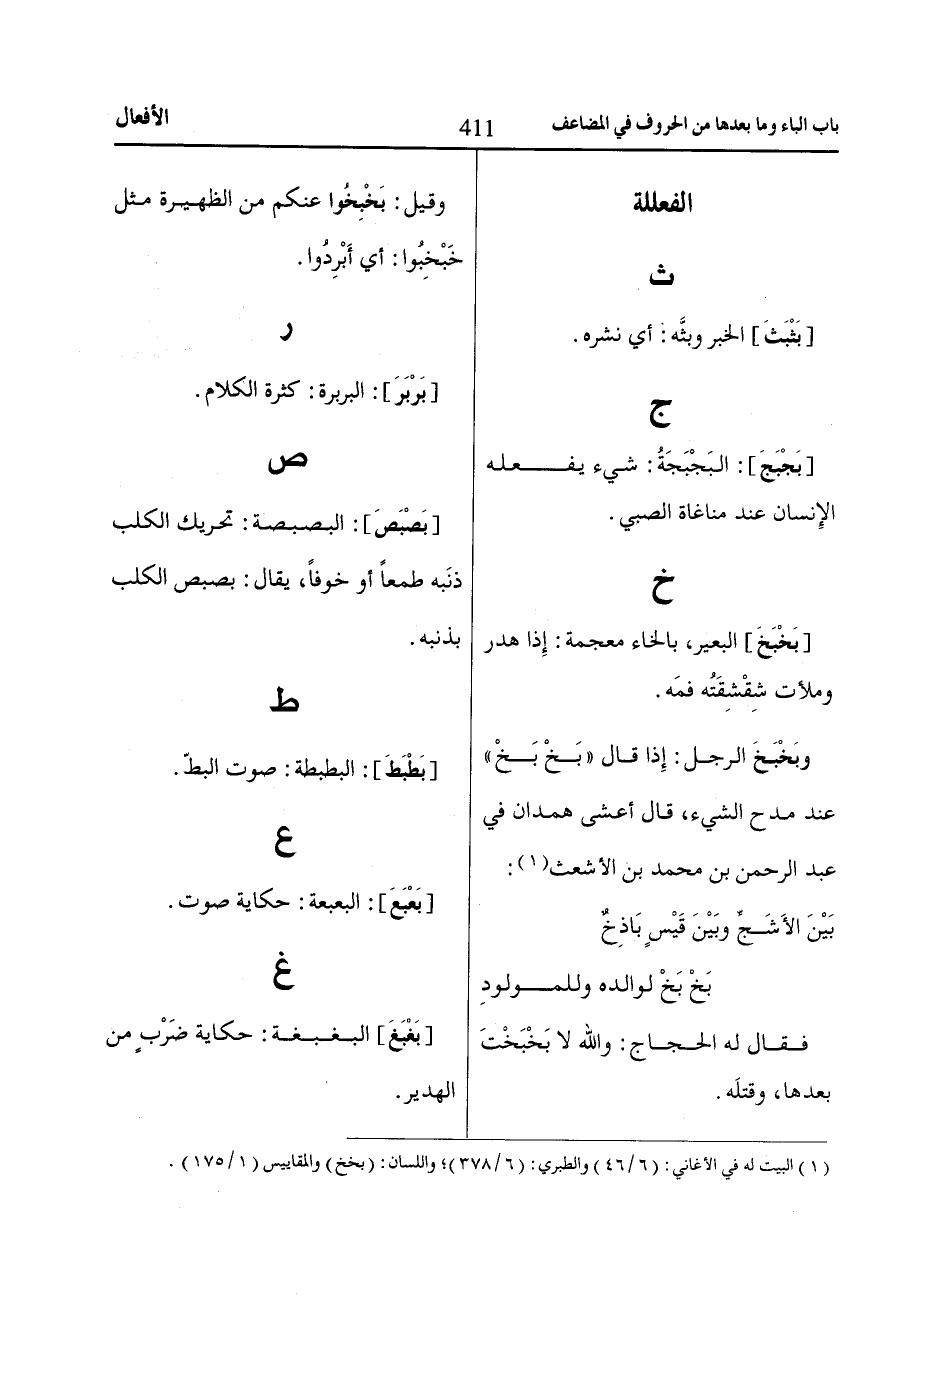 باب الباء وما بعدها من الحروف في المضاعف
411
الأفعال
الفعللة
ث
[بَثْبَثَ] الخبر وبثَّه: أي نشره.
ج
[بَجْبَجَ]: البَجْبَجَةُ: شيء يفعله
الإنسان عند مناغاة الصبي.
خ
[بَخْبَخَ] البعير، بالخاء معجمة: إذا هدر
وملأت شِقْشِقَتُه فمَه.
وبَخْبَخَ الرجل: إذا قال «بَخْ بَخْ»
عند مدح الشيء، قال أعشى همدان في
عبد الرحمن بن محمد بن الأشعث(١):
بَيْنَ الأَشَجِّ وبَيْنَ قَيْسٍ بَاذِخٌ
بَخْ بَخْ لوالده وللمولودِ
فقال له الحجاج: والله لا بَخْبَخْتَ
بعدها، وقتلَه.
وقيل: بَخْبِخُوا عنكم من الظهيرة مثل
خَبْخِبُوا: أي أَبْرِدُوا.
ر
[بَرْبَرَ]: البربرة: كثرة الكلام.
ص
[بَصْبَصَ]: البصبصة: تحريك الكلب
ذنَبه طمعاً أو خوفاً، يقال: بصبص الكلب
بذنبه.
ط
[بَطْبَطَ]: البطبطة: صوت البطّ.
ع
[بَعْبَعَ]: البعبعة: حكاية صوت.
غ
[بَغْبَغَ] البغبغة: حكاية ضَرْبٍ من
الهدير.
(١) البيت له في الأغاني: (٤٦/٦) والطبري: (٣٧٨/٦)؛ واللسان: (بخخ) والمقاييس (١٧٥/١).